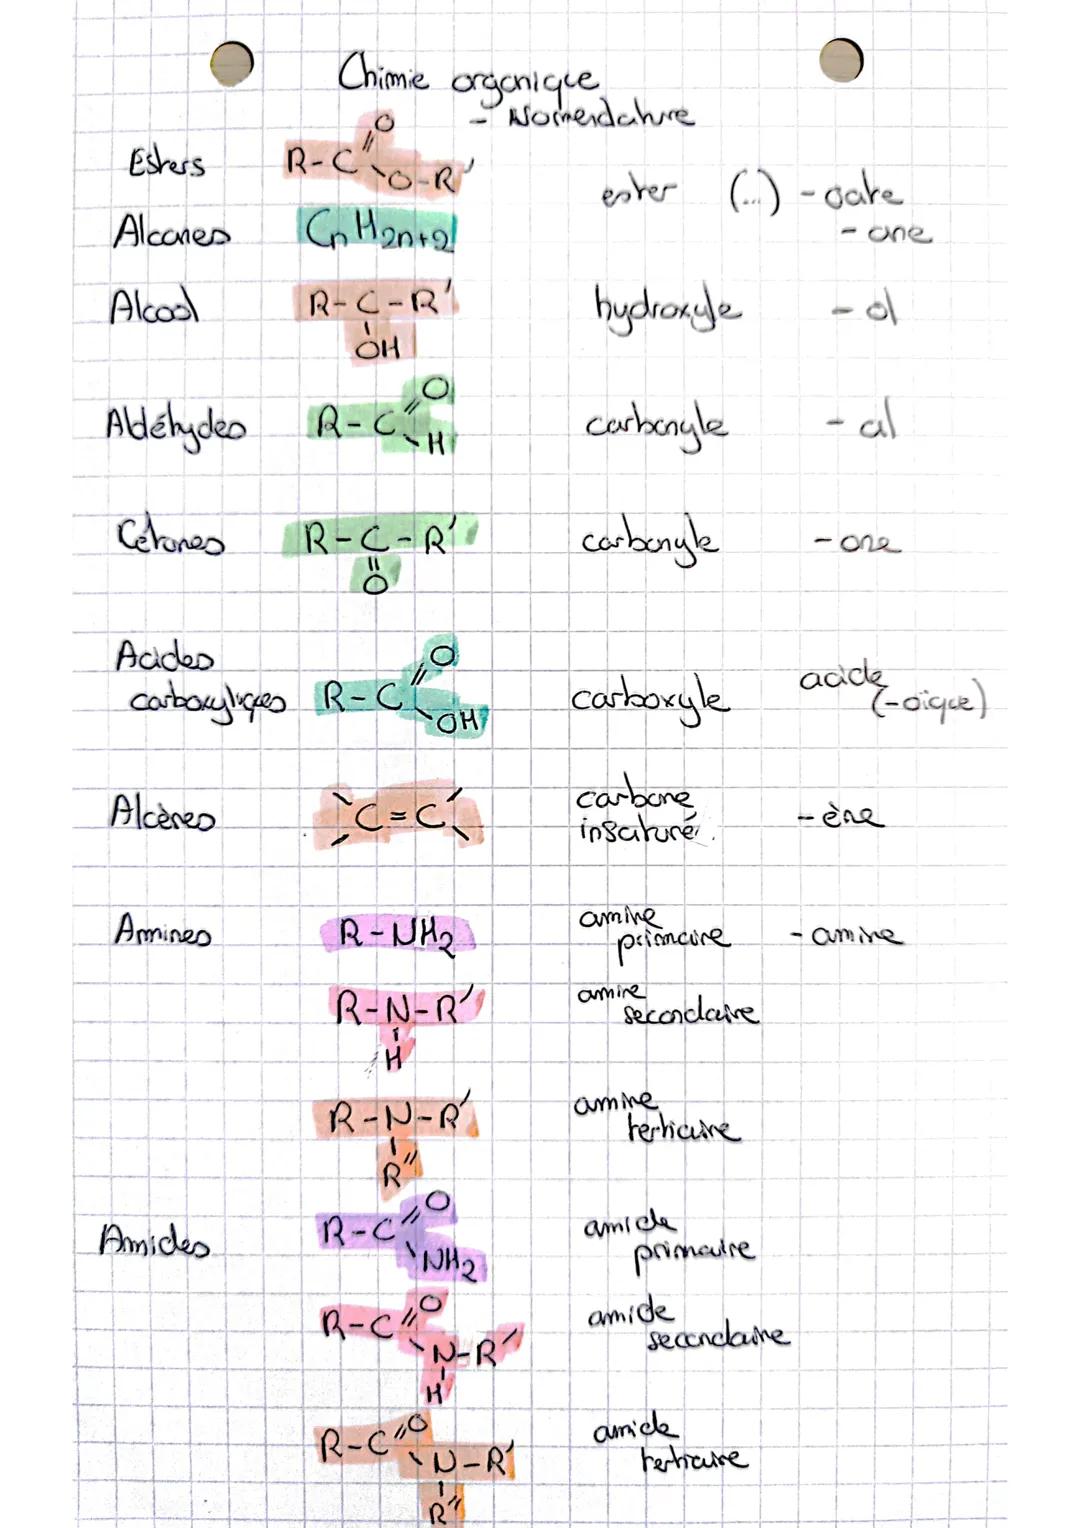 Chimie organique
- Nomenclature
Esters R-C=O O-R' ester (...) -oate
Alcanes CnH2n+2 -ane
Alcool R-C-R' hydroxyle -ol
OH
Aldéhydes R-C=O H carbonyle -al
Cétones R-C-R' carbonyle -one
O
Acides
carboxyliques R-C=O OH carboxyle acide (-oïque)
Alcènes C=C carbone insaturé. -ène
Amines R-NH2 amine primaire -amine
R-N-R' amine secondaire
H
R-N-R' amine tertiaire
R"
Amides R-C=O NH2 amide primaire
R-C=O N-R' amide secondaire
H
R-C=O N-R' amide tertiaire
R"